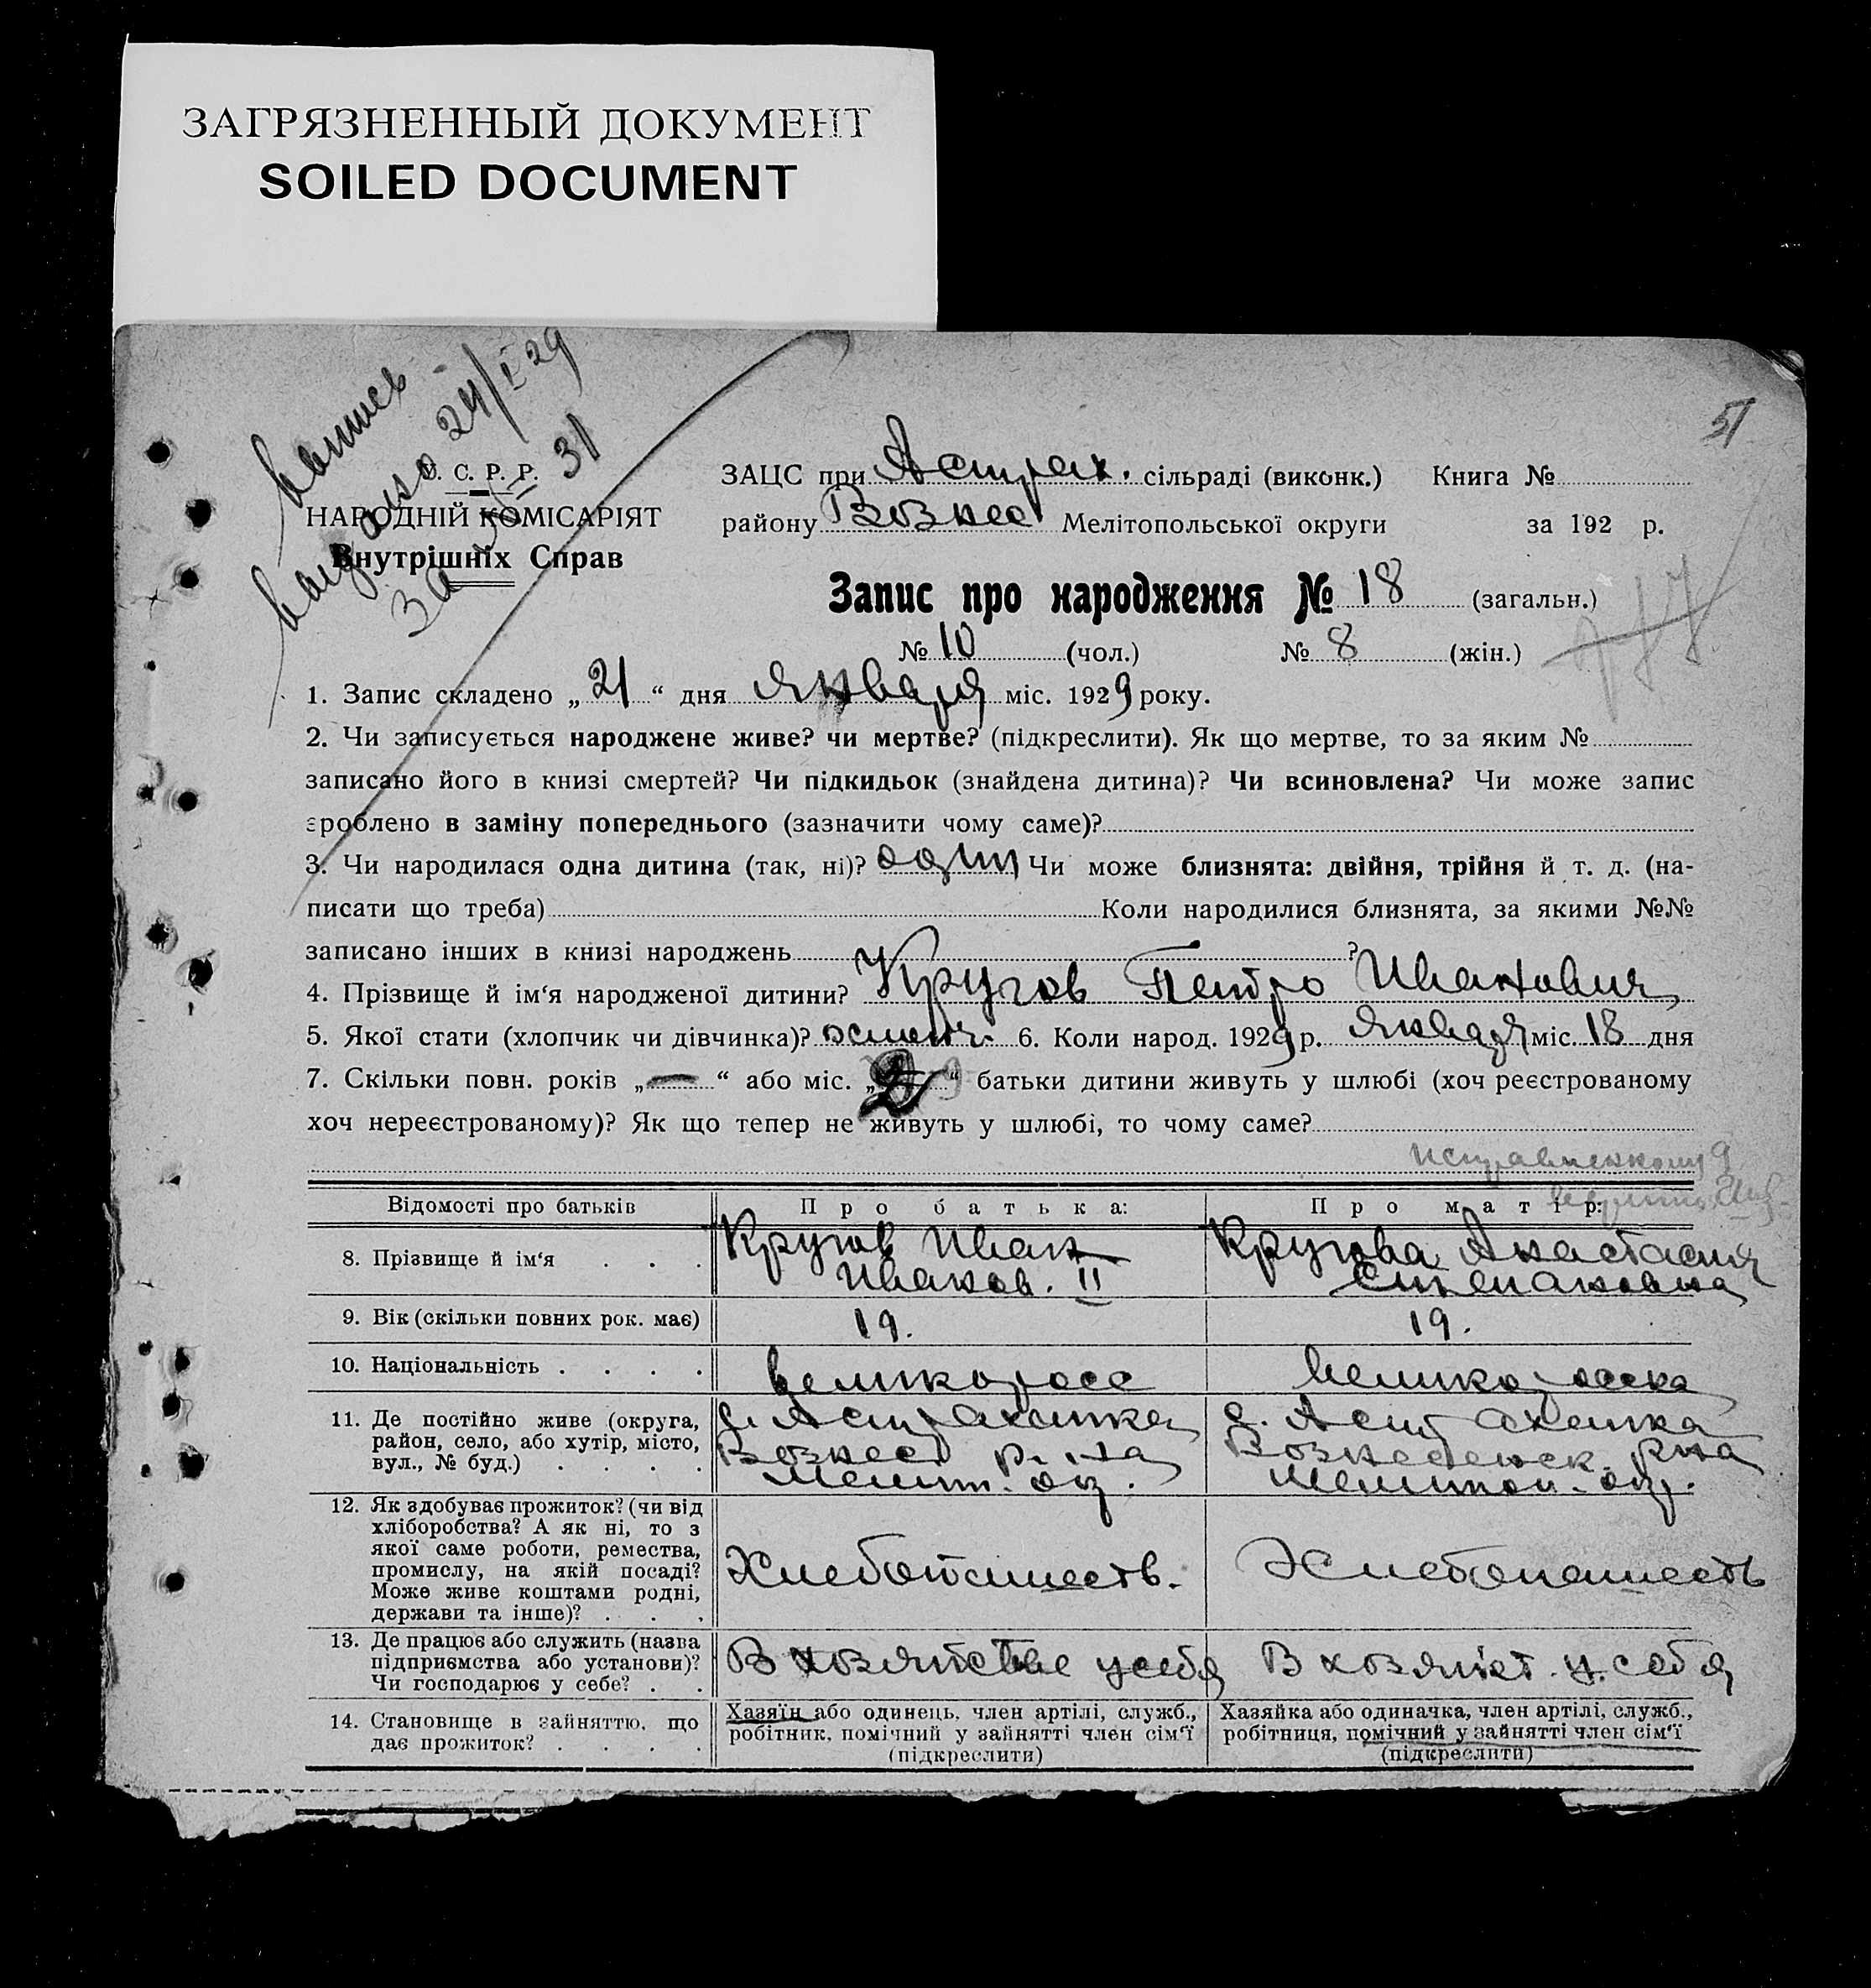 ЗАГРЯЗНЕННЫЙ ДОКУМЕНТ
SOILED DOCUMENT
51
24/I 29
За № 31
У. С. Р. Р.
НАРОДНІЙ КОМІСАРІЯТ
Внутрішніх Справ
ЗАЦС при Астрах. сільраді (виконк.) Книга №
району Вознес Мелітопольської округи за 192 р.
Запис про народження № 18 (загальн.)
№ 10 (чол.) № 8 (жін.)
1. Запис складено „21“ дня января міс. 1929 року.
2. Чи записується народжене живе? чи мертве? (підкреслити). Як що мертве, то за яким №
записано його в книзі смертей? Чи підкидьок (знайдена дитина)? Чи всиновлена? Чи може запис
зроблено в заміну попереднього (зазначити чому саме)?
3. Чи народилася одна дитина (так, ні)? один Чи може близнята: двійня, трійня й т. д. (на-
писати що треба) Коли народилися близнята, за якими №№
записано інших в книзі народжень ?
4. Прізвище й ім‘я народженої дитини? Кругов Петро Иванович
5. Якої стати (хлопчик чи дівчинка)? 6. Коли народ. 1929 р. января міс. 18 дня
7. Скільки повн. років „—“ або міс. „ “ батьки дитини живуть у шлюбі (хоч реєстрованому
хоч нереєстрованому)? Як що тепер не живуть у шлюбі, то чому саме?
Исправленному 9
верить
Відомості про батьків Про батька: Про матір:
8. Прізвище й ім‘я . . . Кругов Иван Иванов. II Кругова Анастасия Степановна
9. Вік (скільки повних рок. має) 19. 19.
10. Національність . . . . великоросс великоросска
11. Де постійно живе (округа, район, село, або хутір, місто, вул., № буд.) . . . . с. Астраханка Вознес р-на Мелит. окр. с. Астраханка Вознесенск. р-на Мелитоп. окр.
12. Як здобуває прожиток? (чи від хліборобства? А як ні, то з якої саме роботи, ремества, промислу, на якій посаді? Може живе коштами родні, держави та інше)? . . . Хлебопашеств. Хлебопашеств
13. Де працює або служить (назва підприємства або установи)? Чи господарює у себе? . . В хозяйстве у себя В хозяйст. у себя
14. Становище в зайняттю, що дає прожиток? . . . . Хазяїн або одинець, член артілі, служб., робітник, помічний у зайнятті член сім‘ї (підкреслити) Хазяйка або одиначка, член артілі, служб., робітниця, помічний у зайнятті член сім‘ї (підкреслити)